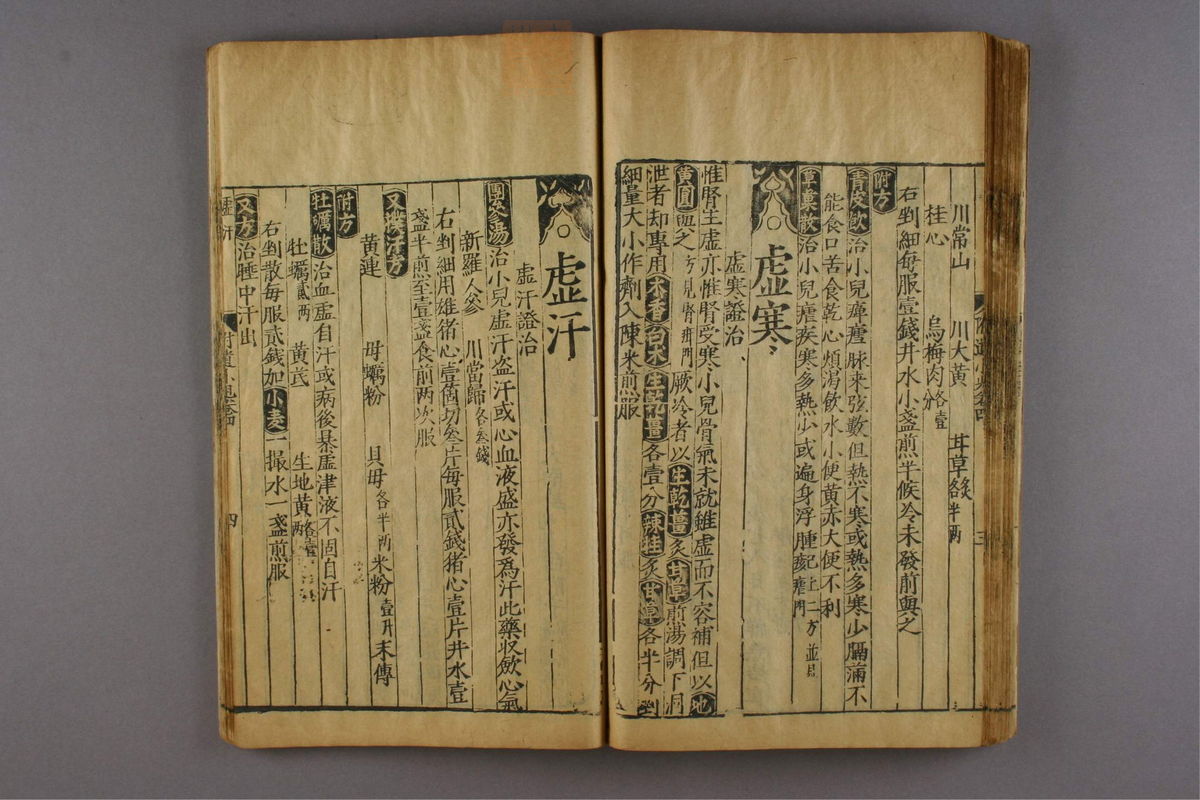 川常山 川大黄 甘草炙半两
桂心 烏梅肉各壹分
右剉細每服壹錢井水小盞煎半候冷未發前與之
附方
青皮飲治小兒癉瘧脉来弦數但熱不寒或熱多寒少膈滿不
能食口苦舌乾心煩渴飲水小便黄赤大便不利
草菓散治小兒瘧疾寒多熱少或遍身浮腫
虚寒
虚寒證治
惟腎主虚亦惟腎受寒小兒骨氣未就雖虚而不容補但以地
黄圓與之方見腎疳門厥冷者以生乾薑炙甘草煎湯調下洞
泄者却專用木香白朮生乾薑各壹分辣桂炙甘草各半分剉
細量大小作劑入陳米煎服
虚汗
虚汗證治
團參湯治小兒虚汗盗汗或心血液盛亦發為汗此藥収斂心氣
新羅人參 川當歸各叁錢
右剉細用雄猪心壹箇切叁片每服貳錢猪心壹片井水壹
盞半煎至壹盞食前两次服
又撲汗方
黄連 母蠣粉 貝母各半两 米粉壹升 末傅
附方
牡蠣散治血虚自汗或病後暴虚津液不固自汗
牡蠣貳两 黄芪 生地黄各壹两
右剉散每服貳錢加小麦一撮水一盞煎服
又方治睡中汗出
虚汗
四